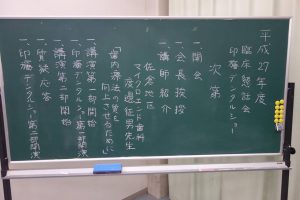 平成27年度
臨床懇話会
印旛デンタルショー
次第
一、開会
一、会長挨拶
一、講師紹介
佐倉地区
マイクロエンド歯科
渡邉征男先生
「歯内療法の質を
向上させるために」
一、講演第一部開始
一、印旛デンタルショー第二部開演
一、講演第二部開始
一、質疑応答
一、印旛デンタルショー第三部開演